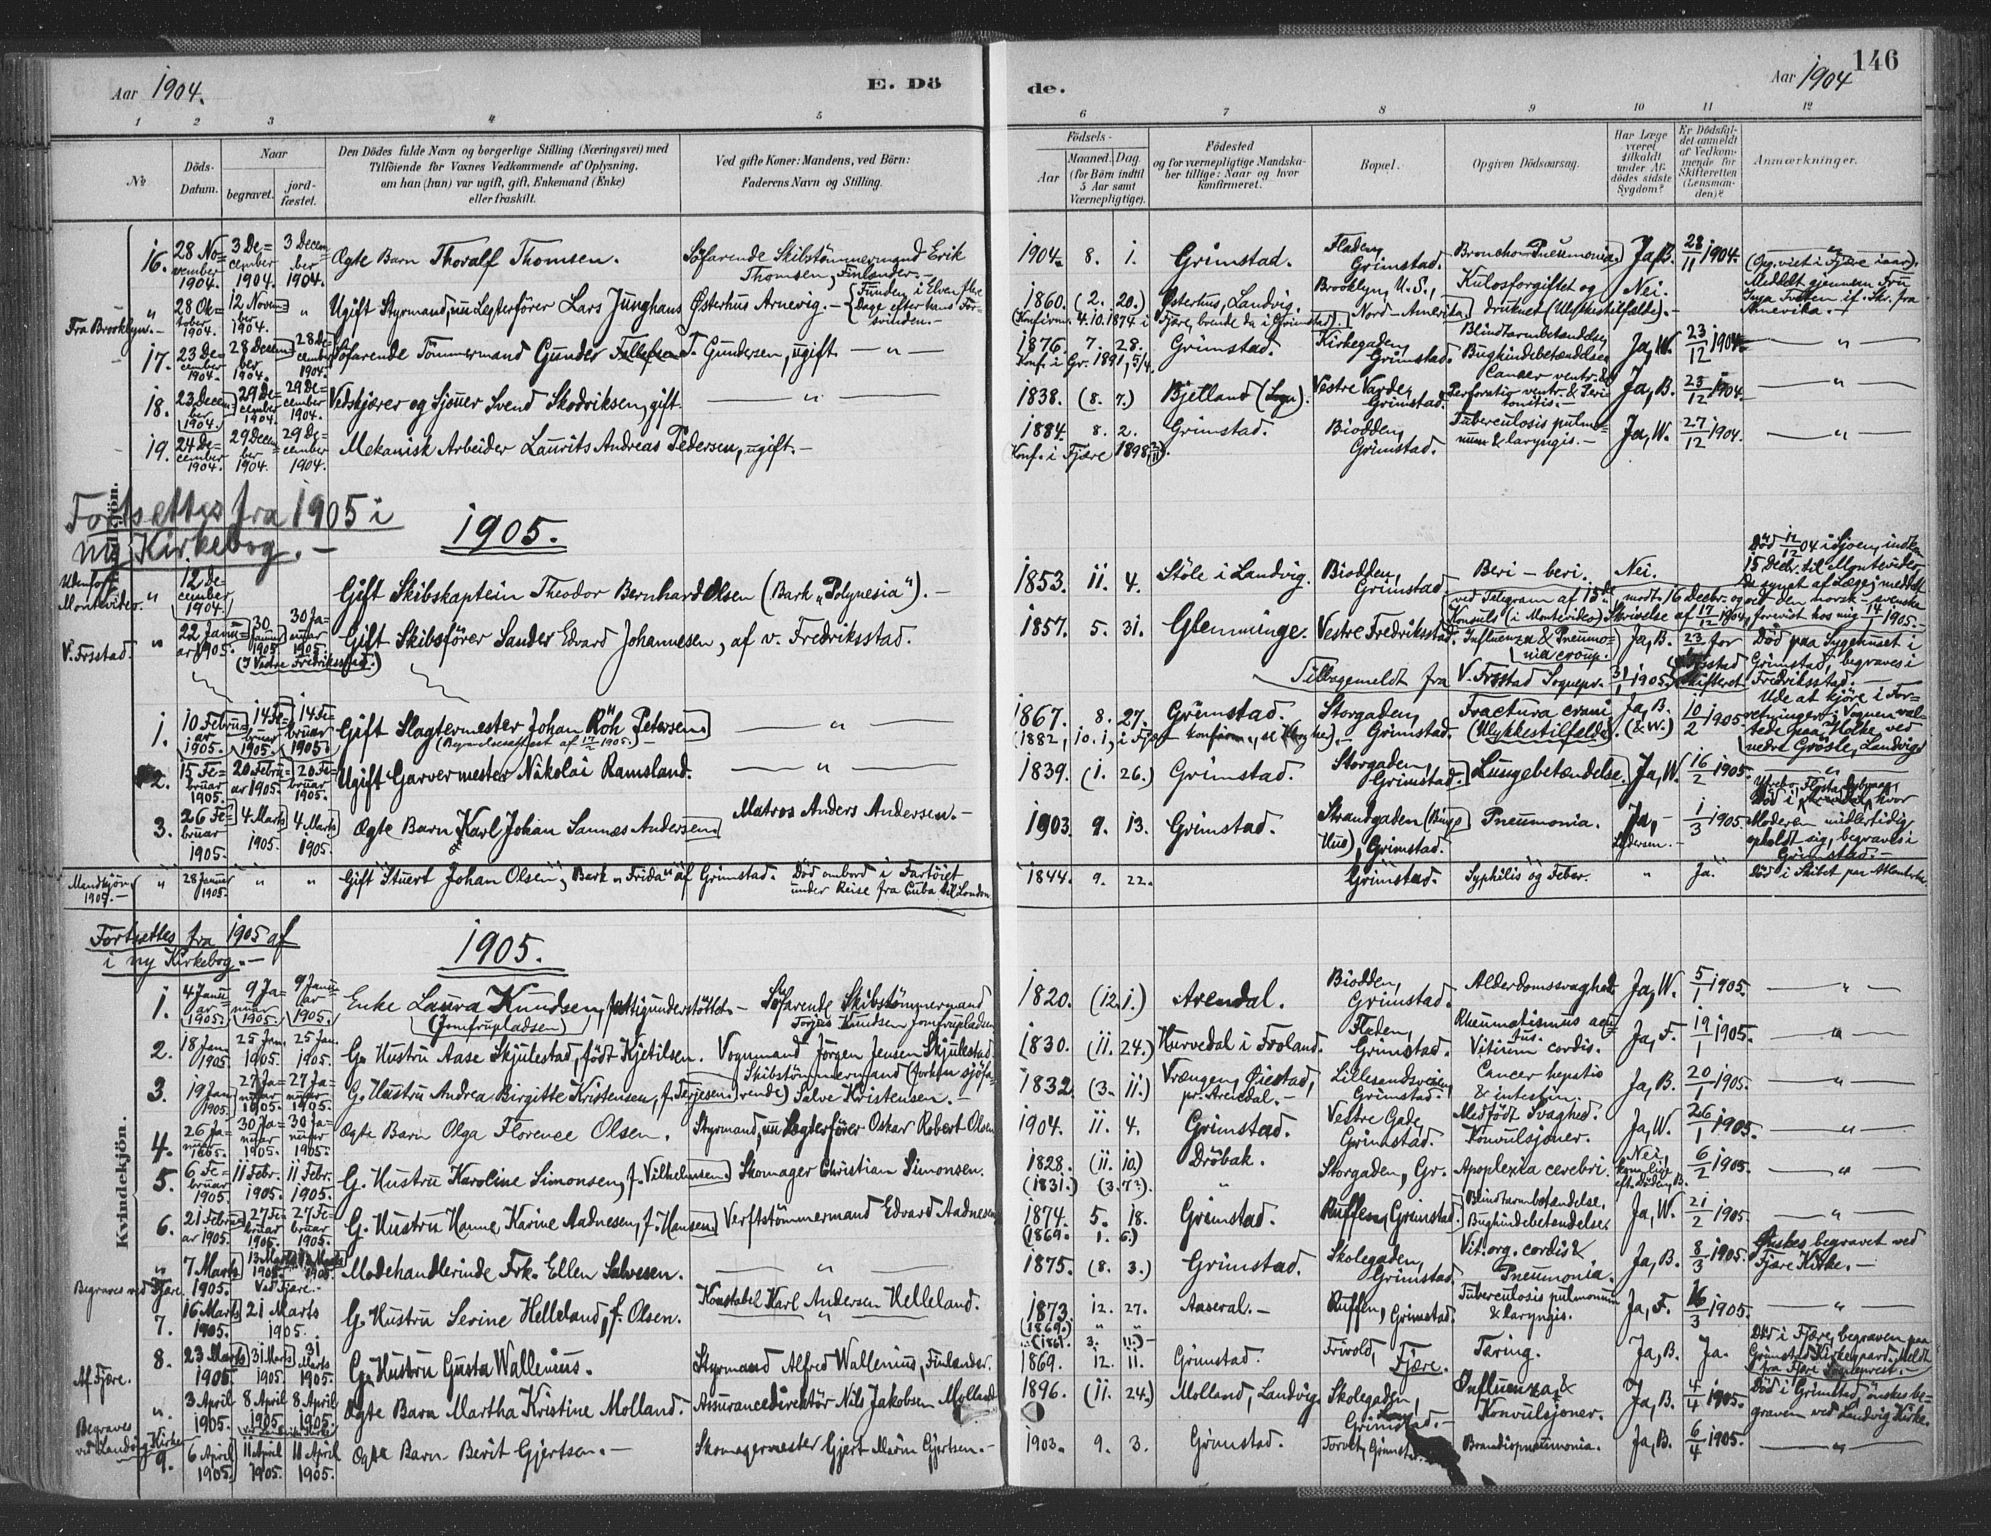 146
Aar 1904.
E. Dö
de.
Aar 1904
1 2 3 4 5 6 7 8 9 10 11 12
№
Döds-Datum.
Naar
begravet.
jord-fæstet.
Den Dödes fulde Navn og borgerlige Stilling (Næringsvei) med
Tilföiende for Voxnes Vedkommende af Oplysning,
om han (hun) var ugift, gift, Enkemand (Enke)
eller fraskilt.
Ved gifte Koner: Mandens, ved Börn:
Faderens Navn og Stilling.
Födsels-
Aar
Maaned. Dag.
(for Börn indtil
5 Aar samt
Værnepligtige).
Födested
og for værnepligtige Mandska-
ber tillige: Naar og hvor
konfirmeret.
Bopæl.
Opgiven Dödsaarsag.
Har Læge
været
tilkaldt
under Af-
dödes sidste
Sygdom?
Er Dödsfal-
det anmeldt
af Vedkom-
mende for
Skifteretten
(Lensman-
den)?
Anmærkninger.
16. 28 November 1904. 3 December 1904. 3 December 1904. Ægte Barn Thoralf Thomsen. Söfarende Skibstömmermand Erik Thomsen, Finlænder. 1904. 8. 1. Grimstad. Fladen, Grimstad. Broncho-Pneumonia. Ja, B. 28/11 1904.
Fra Brooklyn. " 28 Oktober 1904. 12 November 1904. " Ugift Styrmand, nu Lægterförer Lars Junghans Østerhus Arnevig. (Funden i Elven flere Dage efter hans Forsvinden. 1860. (2. 20.) Østerhus, Landvig. Brooklyn, U.S., Nord-Amerika. Kulosforgiftet og druknet (Ulykkestilfælde). Nei. Meddelt gjennem Fru
(Konfirm. 4.10.1874 i Fjære, boende da i Grimstad).
17. 23 December 1904. 28 December 1904. 28 December 1904. Söfarende Tömmermand Gunder Tellefsen T. Gundersen, ugift. " 1876. 7. 28. Grimstad. Kirkegaden, Grimstad. Blindtarmbetændelse, Bughindebetændelse Ja, W. 23/12 1904. "
Konf. i Gr. 1891, 5/4.
18. 23 December 1904. 29 December 1904. 29 December 1904. Vedskjærer og Sjouer Svend Skodriksen, gift. " 1838. (8. 7.) Bjelland (Sogn). Vestre Varde, Grimstad. Cancer ventr. & Perforatio ventr. & Peritonitis. Ja, B. 23/12 1904. "
19. 24 December 1904. 29 December 1904. 29 December 1904. Mekanisk Arbeider Laurits Andreas Pedersen, ugift. 1884. 8. 2. Grimstad. Biodden, Grimstad. Tuberculosis pulmonum & laryngis. Ja, W. 27/12 1904. "
Konf. i Fjære 1898
Fortsættes fra 1905 i
ny Kirkebog.
1905.
Udenfor Montevideo. " 12 December 1904. Gift Skibskaptein Theodor Bernhard Olsen (Bark "Polynesia"). 1853. 11. 4. Stöle i Landvig. Biodden, Grimstad. Beri-beri. Nei. Död 12/12 04 i Sjoen, indkom 15 Decbr. til Montevideo,
(ved Telegram af 15de, modt. 16 Decbr. og ved den norsk-svenske
Konsuls (i Montevideo) Skrivelse af 17/12 1904, forevist hos mig 14/1 1905.
V. Frsstad. " 22 Januar 1905. 30 Januar 1905. 30 Januar 1905. Gift Skibsförer Sander Edvard Johannesen, af v. Fredriksstad. 1857. 5. 31. Glemminge. Vestre Fredriksstad. Influenza & Pneumonia croup. Ja, B. 23 Död paa Sygehuset i Grimstad, begraves i Fredriksstad.
(I Vestre Fredriksstad.)
Tilbagemeldt fra V. Frsstad Sognepr. 31/1 1905.
1. 10 Februar 1905. 14 Februar 1905. 14 Februar 1905. Gift Slagtermester Johan Röh Petersen. " 1867. 8. 27. Grimstad. Storgaden, Grimstad. Fractura cranii (Ulykkestilfælde). Ja, B. (& W.) 10/2 1905 Ude at kjöre i Forretninger, Vognen væltede paa Holke, ved nedre Grösle, Landvig
2. 15 Februar 1905. 20 Februar 1905. 20 Februar 1905. Ugift Garvermester Nikolai Ramsland. " 1839. (1. 26.) Grimstad. Storgaden, Grimstad. Lungebetændelse. Ja, W. 16/2 1905. "
3. 26 Februar 1905. 4 Marts 1905. 4 Marts 1905. Ægte Barn Karl Johan Sannæs Andersen. Matros Anders Andersen. 1903. 9. 13. Grimstad. Strandgaden ( Hus), Grimstad. Pneumonia. Ja, 1/3 1905. Död i Arendal, hvor Moderen midlertidig opholdt sig, begraves i Grimstad.
Mandkjön 1905. " 28 Januar 1905. " " Gift Stuert Johan Olsen, Bark "Frida" af Grimstad. Död ombord i Fartöiet under Reise fra Cuba til London. 1844. 9. 22. Grimstad. Syphilis og Feber. " Ja. Död i Skibet paa Atlanterh.
Fortsættes fra 1905 af
i ny Kirkebog.
1905.
Kvindekjön.
1. 4 Januar 1905. 9 Januar 1905. 9 Januar 1905. Enke Laura Knudsen, fattigunderstöttet. (Jomfrupladsen) Söfarende Skibstömmermand Torjus Knudsen Jomfrupladsen 1820. (12. 1.) Arendal. Biodden, Grimstad. Alderdomssvaghed. Ja, W. 5/1 1905. "
2. 18 Jan. 1905. 25 Jan. 1905. 25 Jan. 1905. G. Hustru Aase Skjulestad, födt Kjetilsen. Vognmand Jörgen Jensen Skjulestad. 1830. (11. 24.) Hurvedal i Froland. Fladen, Grimstad. Rheumatismus acutus. Vitium cordis. Ja, F. 19/1 1905. "
3. 19 Jan. 1905. 27 Januar 1905. 27 Januar 1905. G. Hustru Andrea Birgitte Kristensen, f. Terjesen. Skibstömmermand (forhen sjöfarende) Salve Kristensen. 1832. (3. 11.) Vrængen, Øiestad, pr. Arendal. Lillesandsveien, Grimstad. Cancer hepatis & intestin. Ja, B. 20/1 1905. "
4. 26 Januar 1905. 30 Januar 1905. 30 Januar 1905. Ægte Barn Olga Florence Olsen. Styrmand, nu Lægterförer Oskar Robert Olsen 1904. 11. 4. Grimstad. Vestre Gade, Grimstad. Medfödt Svaghed. Konvulsjoner. Ja, W. 26/1 1905. "
5. 6 Februar 1905. 11 Febr. 1905. 11 Febr. 1905. G. Hustru Karoline Simonsen, f. Vilhelmsen. Skomager Christian Simonsen. 1828. (11. 10.) Dröbak. Storgaden, Gr. Apoplexia cerebri. Nei, 6/2 1905. "
(1831.) (3. 7?).
6. 21 Februar 1905. 27 Februar 1905. 27 Februar 1905. G. Hustru Hanne Karine Aadnesen, f. Hansen. Verftstömmermand Edvard Aadnesen 1874. 5. 18. Grimstad. Ruffen, Grimstad. Blindtarmbetændelse, Bughindebetændelse. Ja, W. 21/2 1905. "
(1869. 1. 6.)
" 7 Marts 1905. 13 Marts 1905. 13 Marts 1905. Ved Fjære. Modehandlerinde Frk. Ellen Salvesen. " 1875. (8. 3.) Grimstad. Skolegaden, Grimstad. Vit. org. cordis & Pneumonia. Ja, B. 8/3 1905. Ønskes begravet ved Fjære Kirke.
Begraves ved Fjære.
7. 16 Marts 1905. 21 Marts 1905. G. Hustru Serine Helleland, f. Olsen. Konstabel Karl Andersen Helleland. 1873. 12. 27. Aaseral. Ruffen, Grimstad. Tuberculosis pulmonum & laryngis. Ja, F. 16/3 1905. "
(1869.) " "
Af Fjære. 8. 23 Marts 1905. 31 Marts 1905. 31 Marts 1905. G. Hustru Gusta Wallenius. Styrmand Alfred Wallenius, Finlænder. 1869. 12. 11. Grimstad. Frivold, Fjære. Tæring. Ja, B. Ja. Död i Fjære, begraven paa Grimstad Kirkegaard. Meldt fra Fjære Sogneprest.
Begraves ved Landvig Kirke " 3 April 1905. 8 April 1905. 8 April 1905. Ægte Barn Martha Kristine Molland. Assurancedirektör Nils Jakobsen Molland 1896. (11. 24.) Molland, Landvig. Skolegaden, Grimstad. Influenza & Konvulsjoner. Ja, B. 4/4 1905. Död i Grimstad, önskes begraven ved Landvig Kirke.
9. 6 April 1905. 11 April 1905. 11 April 1905. Ægte Barn Berit Gjertsen. Skomagermester Gjert Marin Gjertsen. 1903. 9. 3. Grimstad. Torvet, Grimstad. Ja, B. 6/4 1905. "